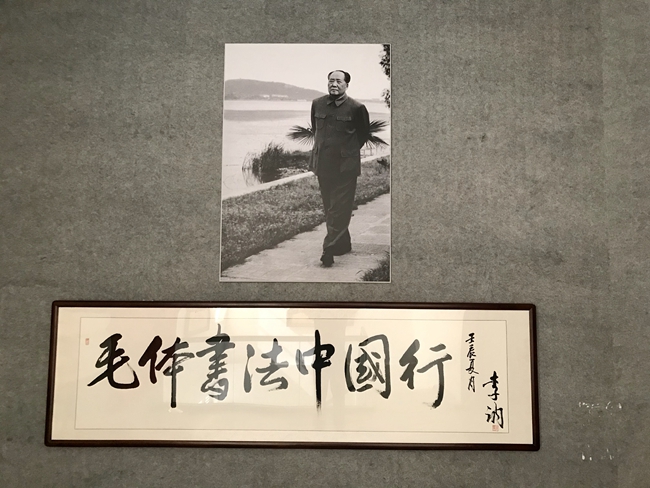 毛体书法中国行
壬辰夏月
李讷